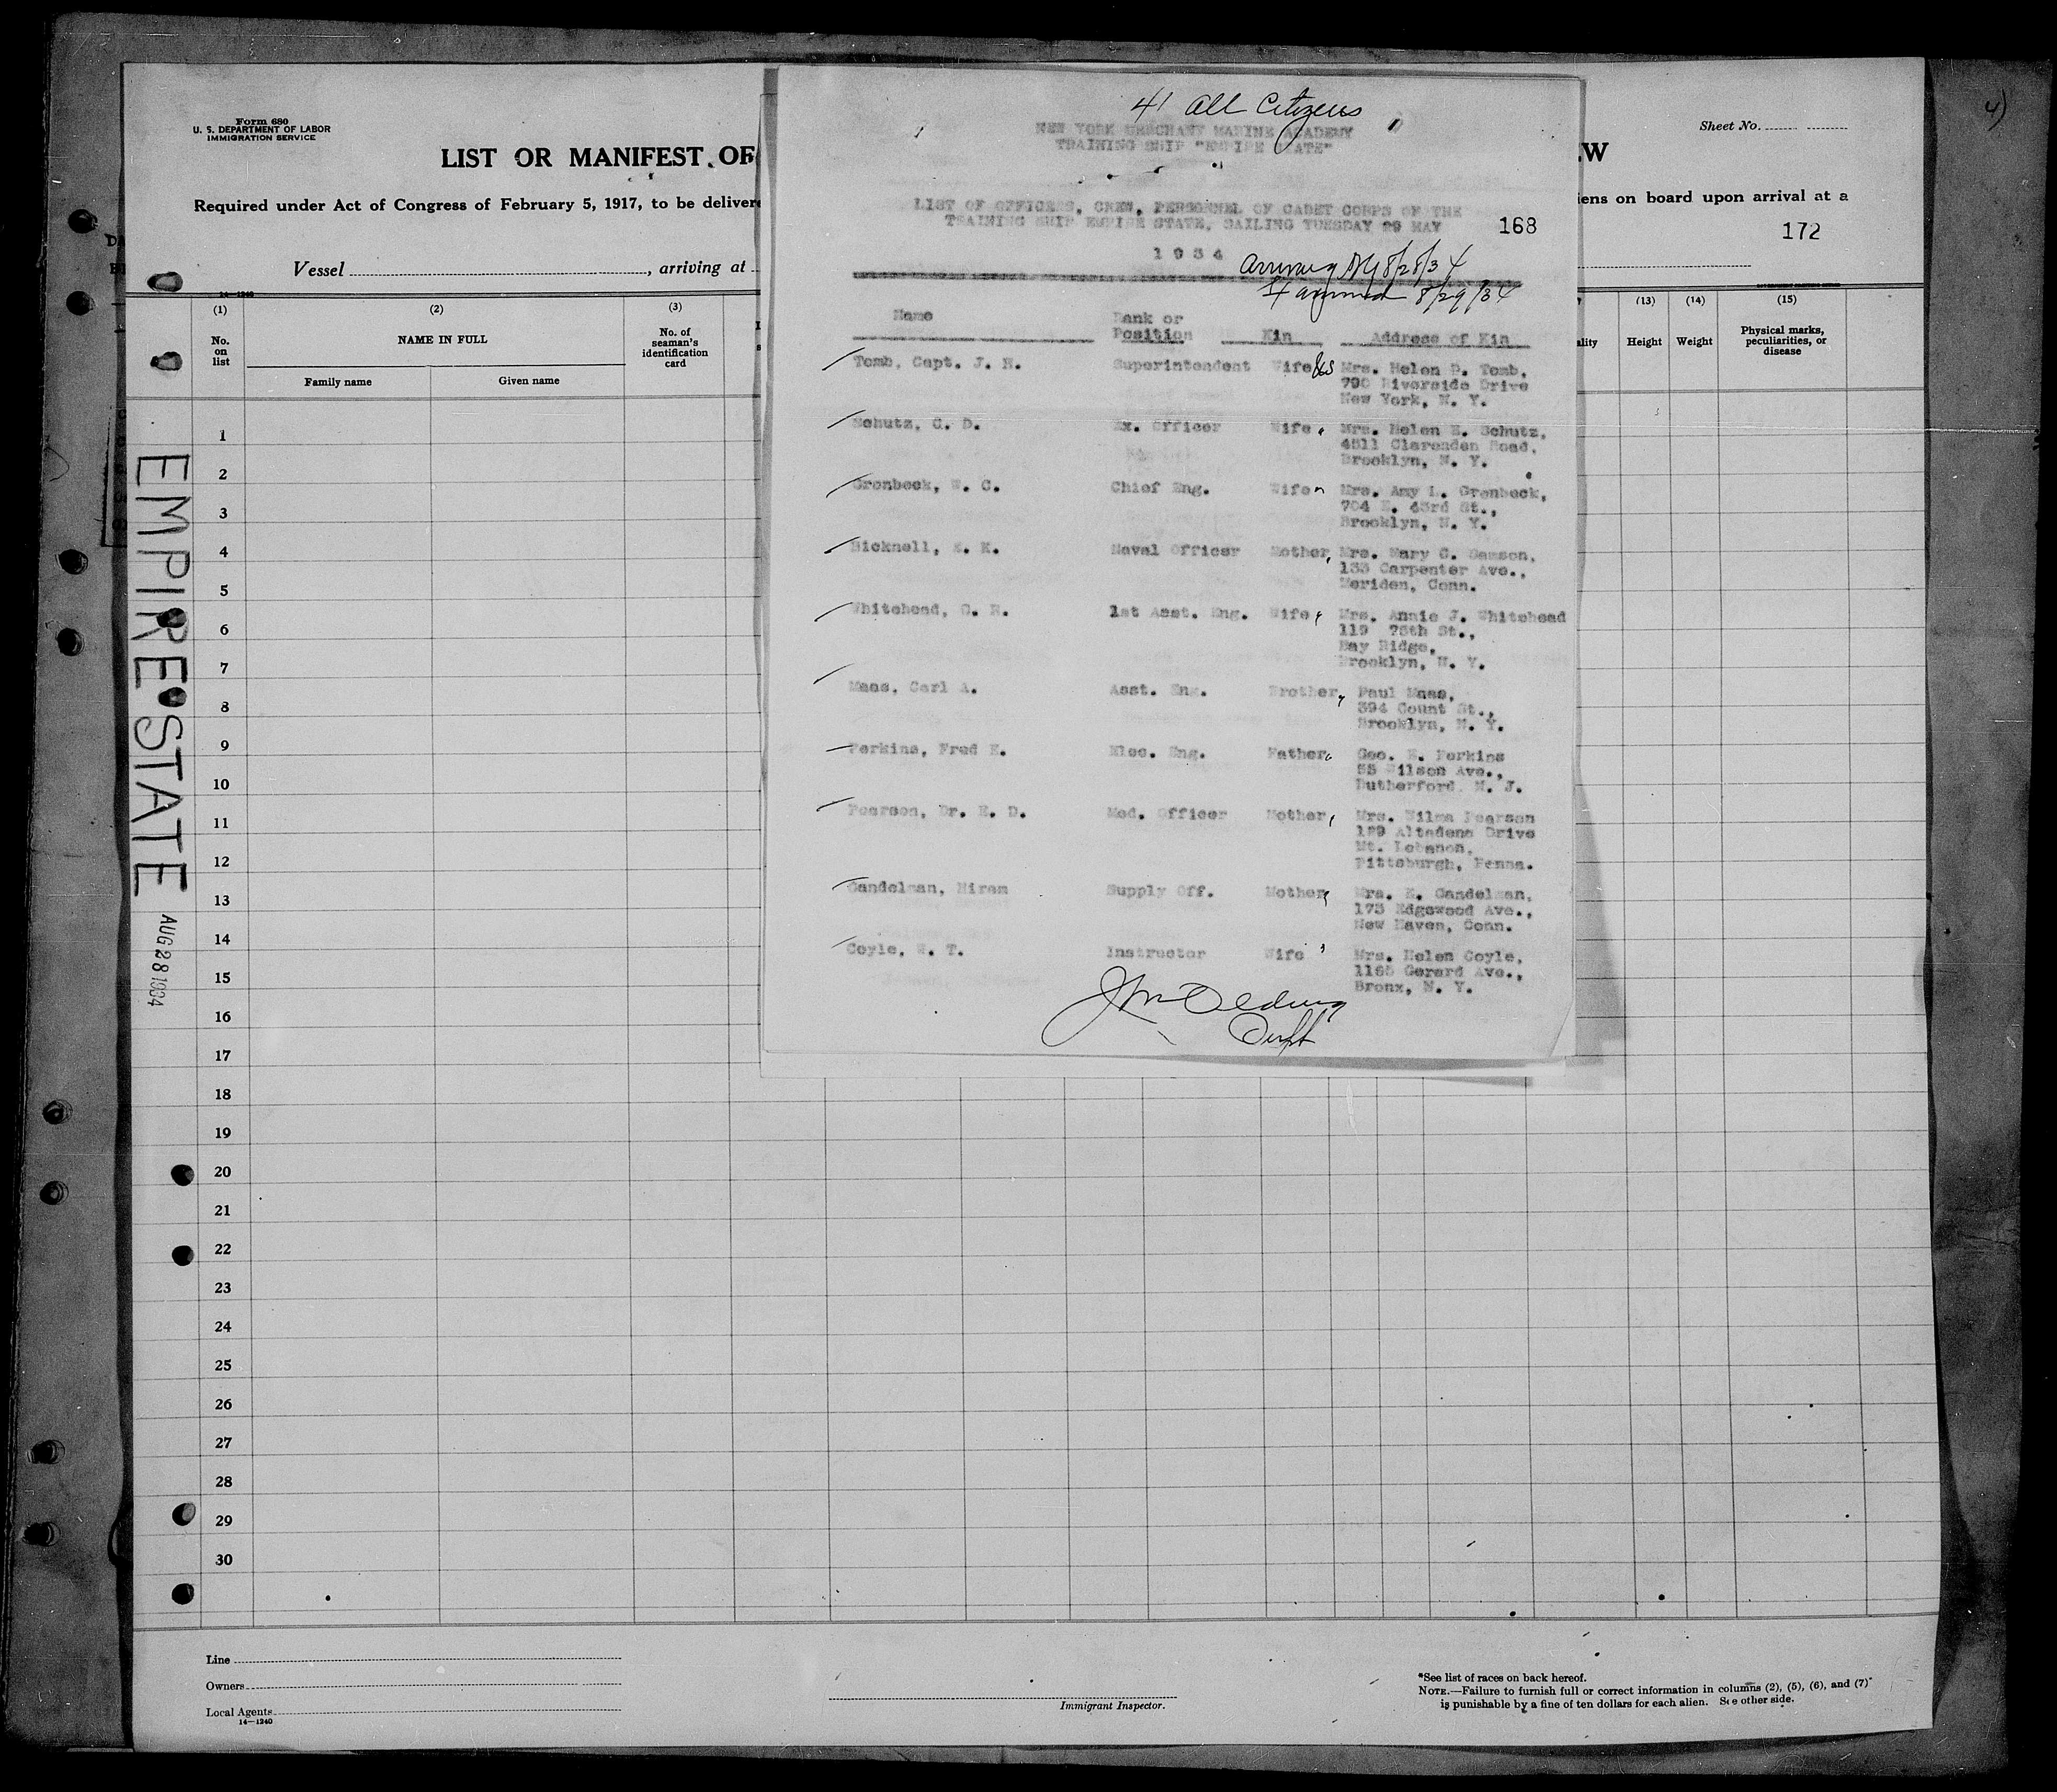 Form 680
U. S. DEPARTMENT OF LABOR
IMMIGRATION SERVICE
Sheet No.
4)
LIST OR MANIFEST OF
EW
Required under Act of Congress of February 5, 1917, to be deliver
iens on board upon arrival at a
172
Vessel , arriving at
14—1240
(1)
No. on list
(2)
NAME IN FULL
Family name
Given name
(3)
No. of seaman's identification card
ality
(13)
Height
(14)
Weight
(15)
Physical marks, peculiarities, or disease
41 All Citizens
NEW YORK MERCHANT MARINE ACADEMY
TRAINING SHIP "EMPIRE STATE"
LIST OF OFFICERS, CREW, PERSONNEL OF CADET CORPS OF THE
TRAINING SHIP EMPIRE STATE, SAILING TUESDAY 29 MAY
168
1 9 3 4
Arriving NY 8/28/34
Examined 8/29/34
Name Rank or Position Kin Address of Kin
Tomb, Capt. J. H. Superintendent Wife Mrs. Helen D. Tomb,
790 Riverside Drive
New York, N. Y.
Schutz, C. D. Ex. Officer Wife Mrs. Helen E. Schutz,
4511 Clarenden Road,
Brooklyn, N. Y.
Gronbeck, W. C. Chief Eng. Wife Mrs. Amy L. Gronbeck,
704 E. 43rd St.,
Brooklyn, N. Y.
Bicknell, E. K. Naval Officer Mother Mrs. Mary C. Samson,
133 Carpenter Ave.,
Meriden, Conn.
Whitehead, G. R. 1st Asst. Eng. Wife Mrs. Annie J. Whitehead
119 75th St.,
Bay Ridge,
Brooklyn, N. Y.
Maas, Carl A. Asst. Eng. Brother Paul Maas,
394 Count St.,
Brooklyn, N. Y.
Perkins, Fred E. Elec. Eng. Father Geo. E. Perkins
55 Wilson Ave.,
Rutherford, N. J.
Pearson, Dr. E. D. Med. Officer Mother Mrs. Wilma Pearson
189 Altadena Drive
Mt. Lebanon,
Pittsburgh, Penna.
Gandelman, Hiram Supply Off. Mother Mrs. E. Gandelman,
175 Edgewood Ave.,
New Haven, Conn.
Coyle, W. T. Instructor Wife Mrs. Helen Coyle,
1165 Gerard Ave.,
Bronx, N. Y.
EMPIRE STATE
AUG 28 1934
1
2
3
4
5
6
7
8
9
10
11
12
13
14
15
16
17
18
19
20
21
22
23
24
25
26
27
28
29
30
Line
Owners
Local Agents
14—1240
Immigrant Inspector.
*See list of races on back hereof.
NOTE.—Failure to furnish full or correct information in columns (2), (5), (6), and (7)
is punishable by a fine of ten dollars for each alien. See other side.